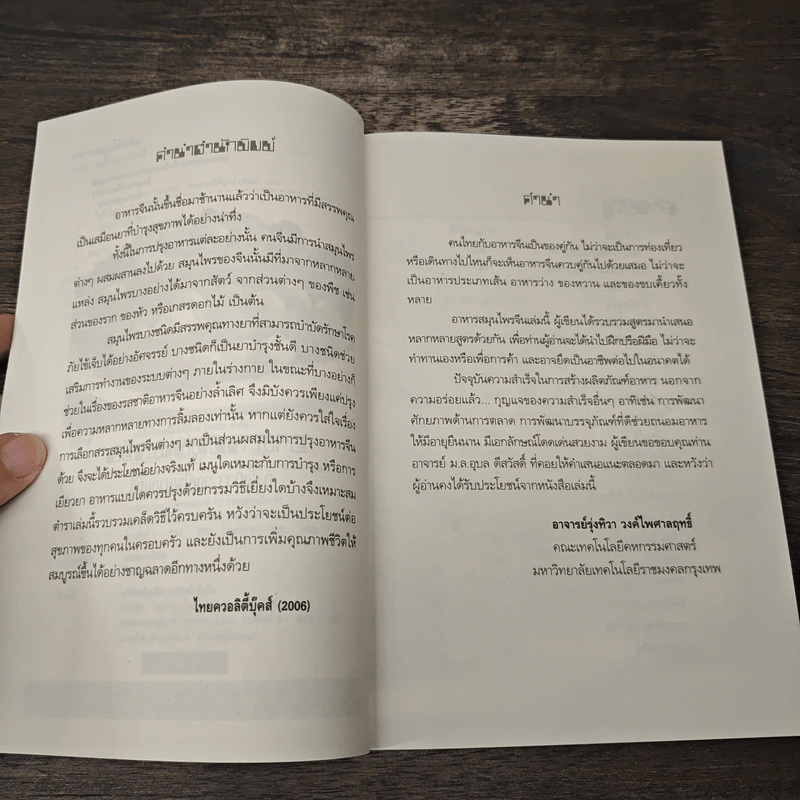 คำนำสำนักพิมพ์
อาหารจีนนั้นขึ้นชื่อมาช้านานแล้วว่าเป็นอาหารที่มีสรรพคุณ
เป็นเสมือนยาที่บำรุงสุขภาพได้อย่างน่าทึ่ง
ทั้งนี้ในการปรุงอาหารแต่ละอย่างนั้น คนจีนมีการนำสมุนไพร
ต่างๆ ผสมผสานลงไปด้วย สมุนไพรของจีนนั้นมีที่มาจากหลากหลาย
แหล่ง สมุนไพรบางอย่างได้มาจากสัตว์ จากส่วนต่างๆ ของพืช เช่น
ส่วนของราก ของหัว หรือเกสรดอกไม้ เป็นต้น
สมุนไพรบางชนิดมีสรรพคุณทางยาที่สามารถบำบัดรักษาโรค
ภัยไข้เจ็บได้อย่างอัศจรรย์ บางชนิดก็เป็นยาบำรุงชั้นดี บางชนิดช่วย
เสริมการทำงานของระบบต่างๆ ภายในร่างกาย ในขณะที่บางอย่างก็
ช่วยในเรื่องของรสชาติอาหารจีนอย่างล้ำเลิศ จึงมิบังควรเพียงแค่ปรุง
เพื่อความหลากหลายทางการลิ้มลองเท่านั้น หากแต่ยังควรใส่ใจเรื่อง
การเลือกสรรสมุนไพรจีนต่างๆ มาเป็นส่วนผสมในการปรุงอาหารจีน
ด้วย จึงจะได้ประโยชน์อย่างจริงแท้ เมนูใดเหมาะกับการบำรุง หรือการ
เยียวยา อาหารแบบใดควรปรุงด้วยกรรมวิธีเยี่ยงใดบ้างจึงเหมาะสม
ตำราเล่มนี้รวบรวมเคล็ดวิธีไว้ครบครัน หวังว่าจะเป็นประโยชน์ต่อ
สุขภาพของทุกคนในครอบครัว และยังเป็นการเพิ่มคุณภาพชีวิตให้
สมบูรณ์ขึ้นได้อย่างชาญฉลาดอีกทางหนึ่งด้วย
ไทยควอลิตี้บุ๊คส์ (2006)
คำนำ
คนไทยกับอาหารจีนเป็นของคู่กัน ไม่ว่าจะเป็นการท่องเที่ยว
หรือเดินทางไปไหนก็จะเห็นอาหารจีนควบคู่กันไปด้วยเสมอ ไม่ว่าจะ
เป็นอาหารประเภทเส้น อาหารว่าง ของหวาน และของขบเคี้ยวทั้ง
หลาย
อาหารสมุนไพรจีนเล่มนี้ ผู้เขียนได้รวบรวมสูตรมานำเสนอ
หลากหลายสูตรด้วยกัน เพื่อท่านผู้อ่านจะได้นำไปฝึกปรือฝีมือ ไม่ว่าจะ
ทำทานเองหรือเพื่อการค้า และอาจยึดเป็นอาชีพต่อไปในอนาคตได้
ปัจจุบันความสำเร็จในการสร้างผลิตภัณฑ์อาหาร นอกจาก
ความอร่อยแล้ว... กุญแจของความสำเร็จอื่นๆ อาทิเช่น การพัฒนา
ศักยภาพด้านการตลาด การพัฒนาบรรจุภัณฑ์ที่ดีช่วยถนอมอาหาร
ให้มีอายุยืนนาน มีเอกลักษณ์โดดเด่นสวยงาม ผู้เขียนขอขอบคุณท่าน
อาจารย์ ม.ล.อุบล ดีสวัสดิ์ ที่คอยให้คำเสนอแนะตลอดมา และหวังว่า
ผู้อ่านคงได้รับประโยชน์จากหนังสือเล่มนี้
อาจารย์รุ่งทิวา วงค์ไพศาลฤทธิ์
คณะเทคโนโลยีคหกรรมศาสตร์
มหาวิทยาลัยเทคโนโลยีราชมงคลกรุงเทพ